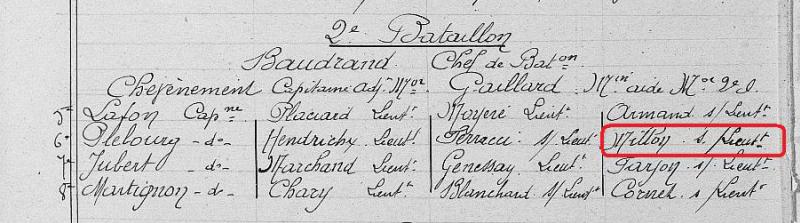 2e Bataillon
Baudrand Chef de Baton
Chefènement Capitaine adjt Mor Gaillard Min aide Mor 2e cl.
5e Lafon Capne Placiard Lieutt Moyeré Lieutt Armand s/Lieutt
6e Plebourg -do- Hendrichx Lieutt Ferracci s/Lieutt Mitton s/Lieutt
7e Jubert -do- Marchand Lieutt Genessay Lieutt Farjon s/Lieutt
8e Martignon -do- Chary Lieutt Blanchard s/Lieutt Cornet s/Lieutt